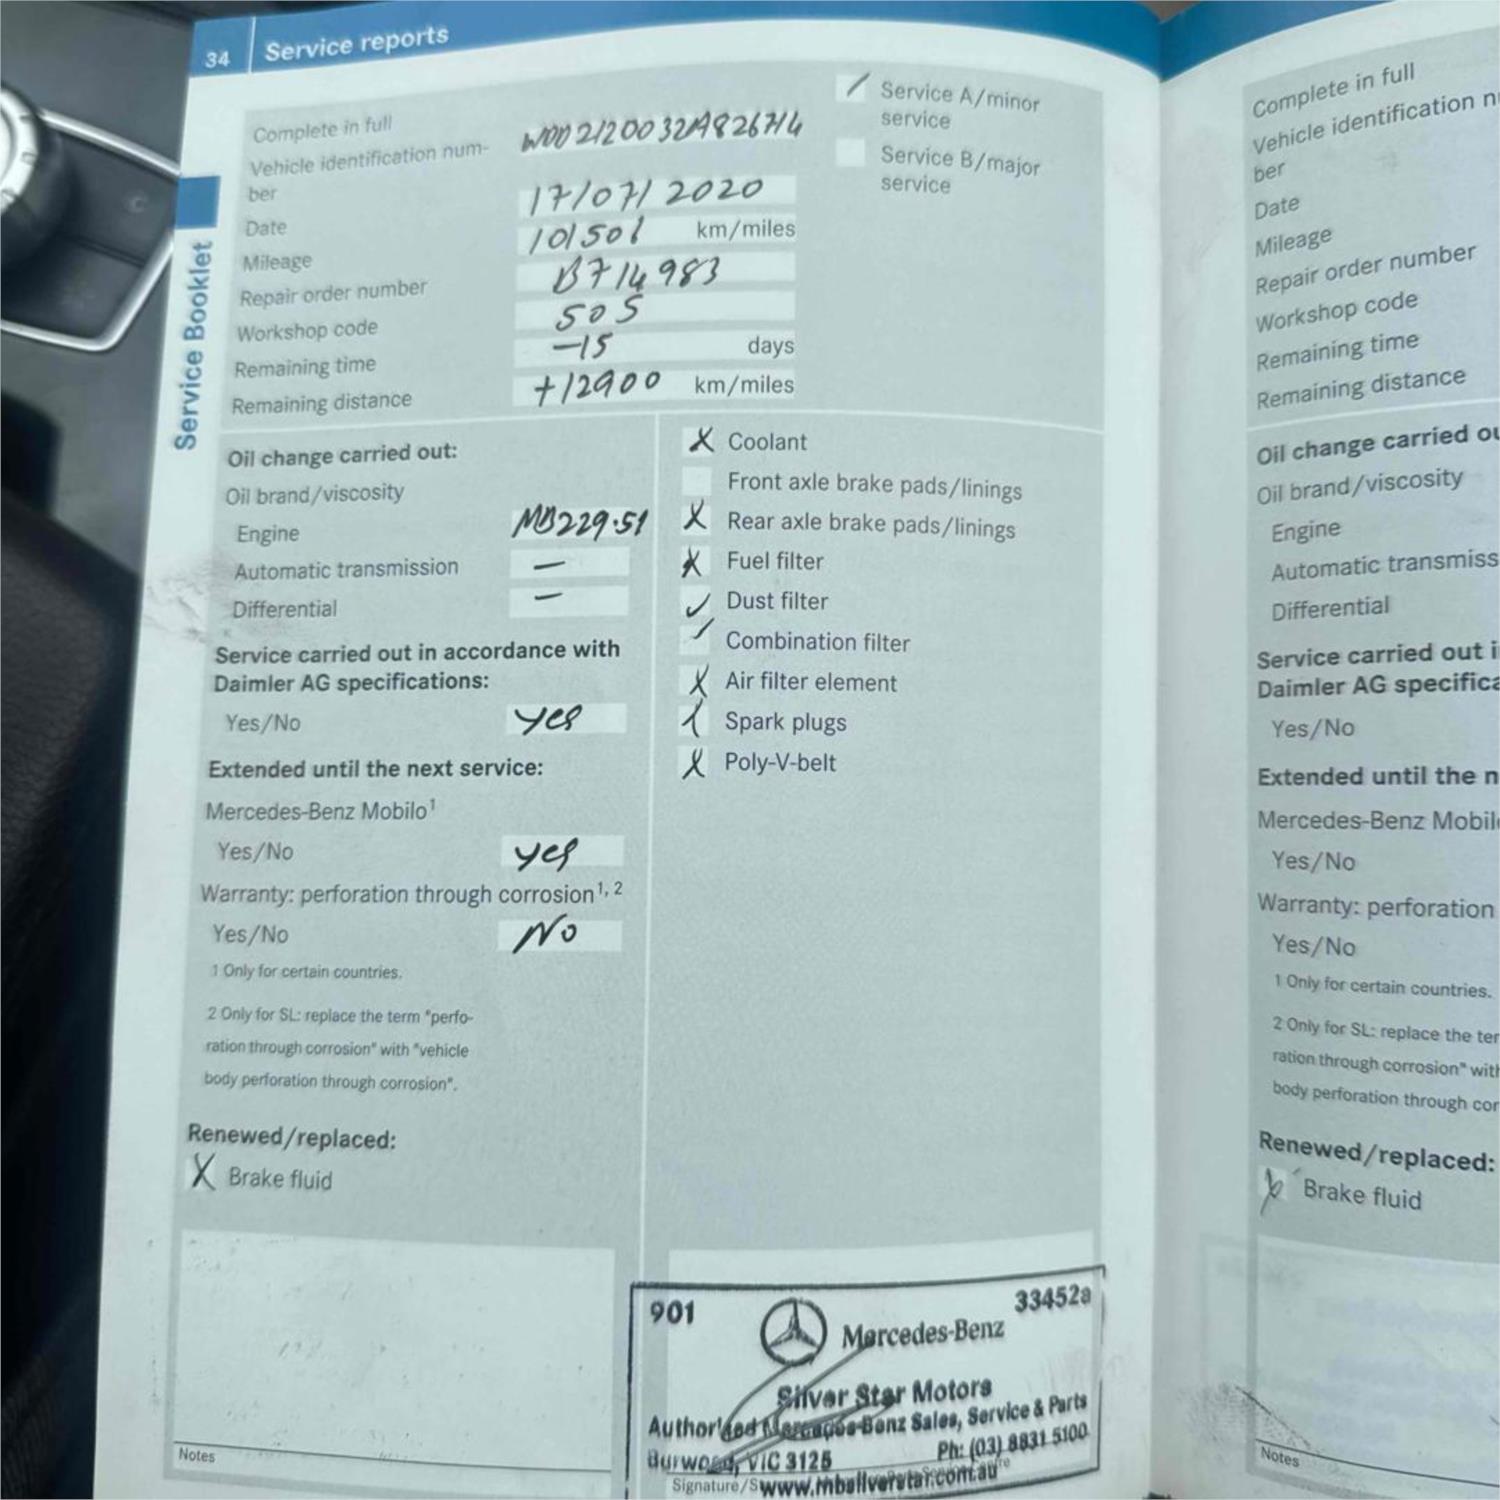 34 Service reports
Complete in full
Vehicle identification num-
ber
WDD2120032A826714
Service A/minor
service
Service B/major
service
Date 17/07/2020
Mileage 101501 km/miles
Repair order number B714983
Workshop code 505
Remaining time -15 days
Remaining distance +12900 km/miles
Service Booklet
Oil change carried out:
Oil brand/viscosity
Engine MB229.51
Automatic transmission —
Differential —
Service carried out in accordance with
Daimler AG specifications:
Yes/No yes
Extended until the next service:
Mercedes-Benz Mobilo1
Yes/No yes
Warranty: perforation through corrosion1, 2
Yes/No No
1 Only for certain countries.
2 Only for SL: replace the term "perfo-
ration through corrosion" with "vehicle
body perforation through corrosion".
Renewed/replaced:
X Brake fluid
X Coolant
Front axle brake pads/linings
X Rear axle brake pads/linings
X Fuel filter
✓ Dust filter
Combination filter
X Air filter element
Spark plugs
X Poly-V-belt
Notes
901 33452a
Mercedes-Benz
Silver Star Motors
Authorised Mercedes-Benz Sales, Service & Parts
Burwood, VIC 3125 Ph: (03) 8831 5100
Signature/S
www.mbsilverstar.com.au
Complete in full
Vehicle identification n
ber
Date
Mileage
Repair order number
Workshop code
Remaining time
Remaining distance
Oil change carried ou
Oil brand/viscosity
Engine
Automatic transmiss
Differential
Service carried out i
Daimler AG specifica
Yes/No
Extended until the n
Mercedes-Benz Mobil
Yes/No
Warranty: perforation
Yes/No
1 Only for certain countries.
2 Only for SL: replace the ter
ration through corrosion" wit
body perforation through cor
Renewed/replaced:
Brake fluid
Notes